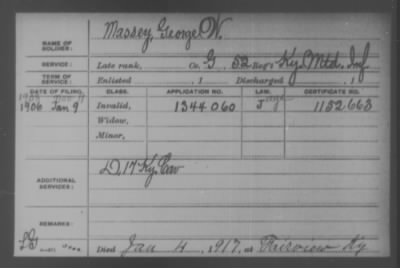 Massey, George W.
NAME OF SOLDIER:
SERVICE: Late rank, Co. G, 52 Reg't Ky. Mtd. Inf
TERM OF SERVICE: Enlisted , 1 Discharged , 1
DATE OF FILING. CLASS. APPLICATION NO. LAW. CERTIFICATE NO.
1906 Jan 9 Invalid, 1344060 1152663
Widow,
Minor,
D, 17 Ky. Cav
ADDITIONAL SERVICES:
REMARKS:
Died Jan 4, 1917, at Fairview Ky